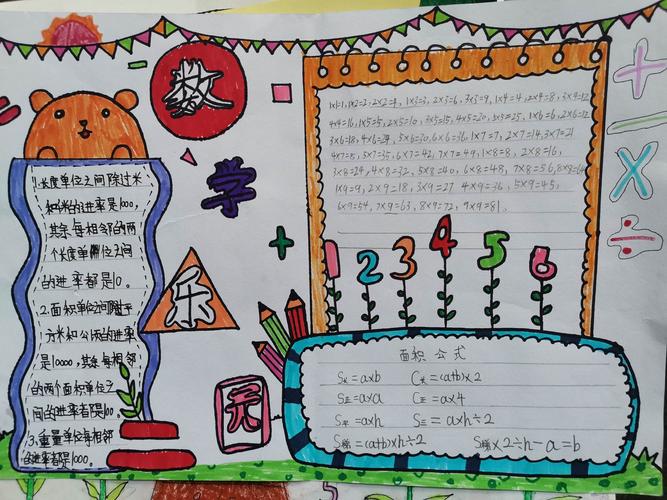 数
学
乐
园
1.长度单位之间除过米
和米的进率是1000,
其余每相邻的两
个长度单位之间
的进率都是10。
2.面积单位之间除平
方米和公顷的进率
是10000,其余每相邻
的两个面积单位之
间的进率都是100。
3.重量单位每相邻
的进率都是1000。
1×1=1, 1×2=2, 2×2=4, 1×3=3, 2×3=6, 3×3=9, 1×4=4, 2×4=8, 3×4=12
4×4=16, 1×5=5, 2×5=10, 3×5=15, 4×5=20, 5×5=25, 1×6=6, 2×6=12
3×6=18, 4×6=24, 5×6=30, 6×6=36, 1×7=7, 2×7=14, 3×7=21
4×7=28, 5×7=35, 6×7=42, 7×7=49, 1×8=8, 2×8=16,
3×8=24, 4×8=32, 5×8=40, 6×8=48, 7×8=56, 8×8=64
1×9=9, 2×9=18, 3×9=27, 4×9=36, 5×9=45,
6×9=54, 7×9=63, 8×9=72, 9×9=81.
1 2 3 4 5 6
+
−
×
÷
面积公式
S长=a×b C长=(a+b)×2
S正=a×a C正=a×4
S平=a×h S三=a×h÷2
S梯=(a+b)×h÷2 S梯×2÷h-a=b